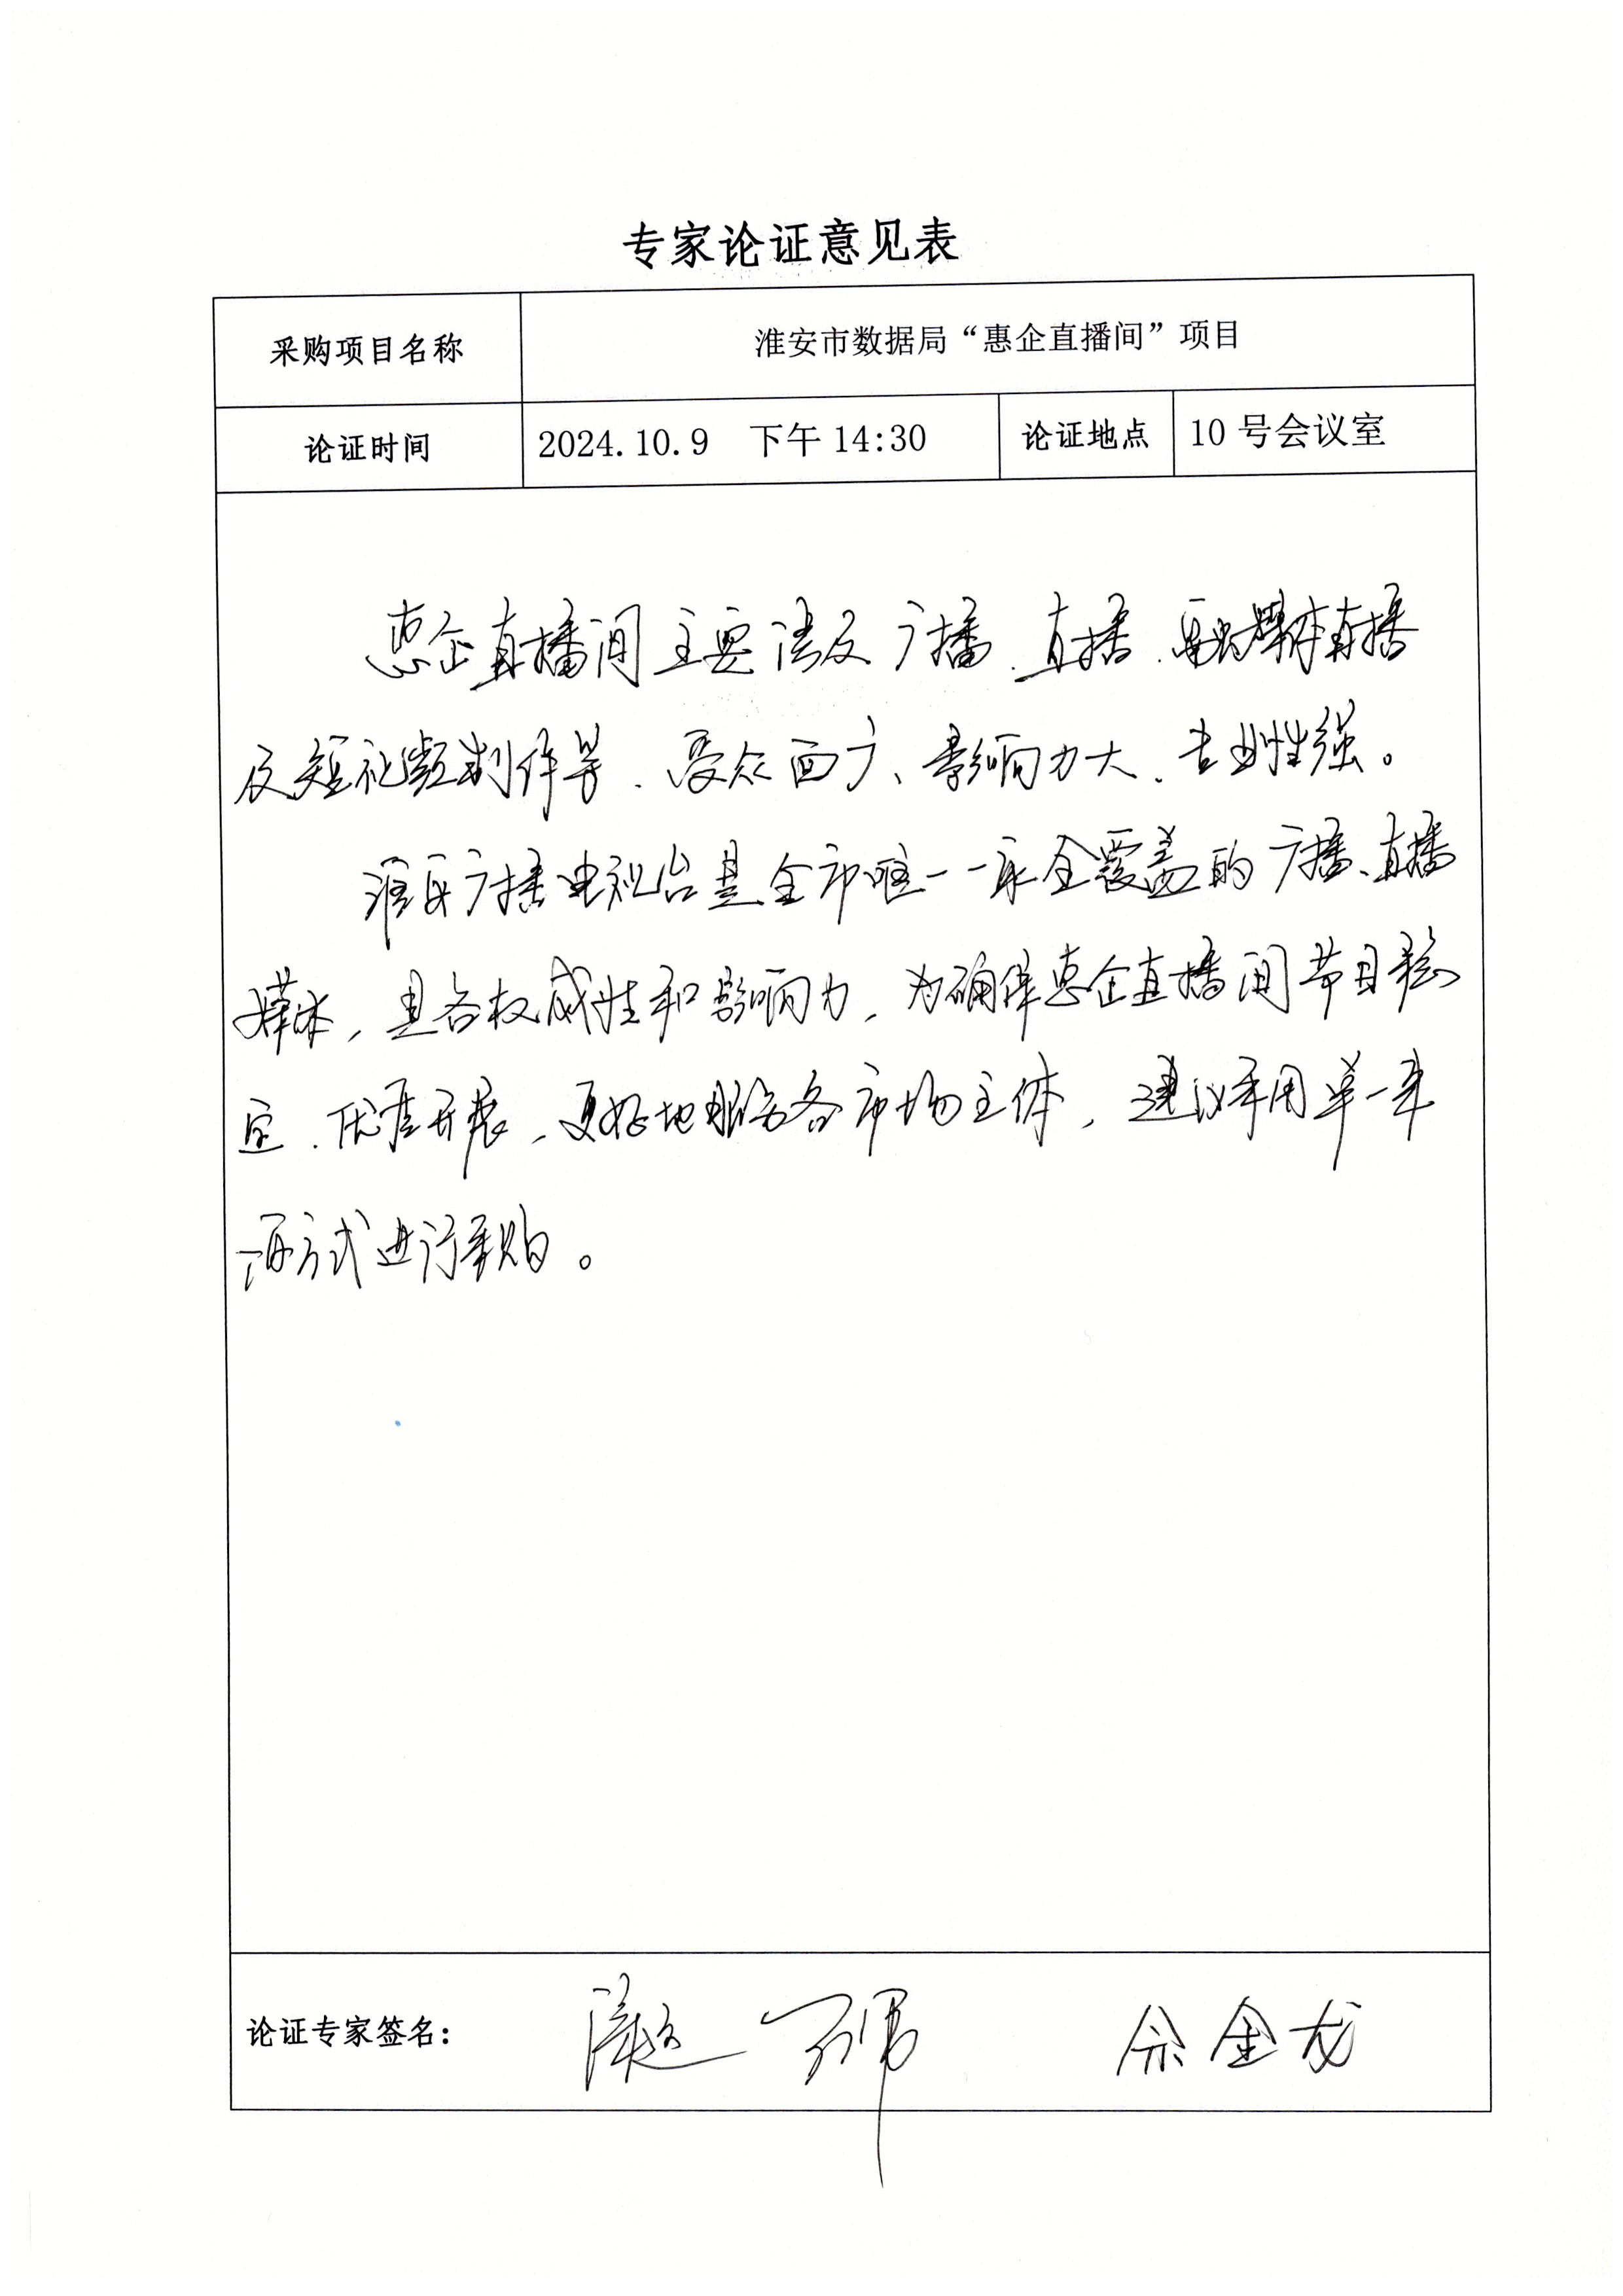 专家论证意见表
采购项目名称 淮安市数据局“惠企直播间”项目
论证时间 2024.10.9 下午 14:30 论证地点 10 号会议室
惠企直播间主要涉及广播、直播、融媒体直播
及短视频制作等、受众面广、影响力大、专业性强。
淮安广播电视台是全市唯一一家全覆盖的广播、直播
媒体，具备权威性和影响力，为确保惠企直播间节目稳
定、优质开展，更好地服务各市场主体，建议采用单一来
源方式进行采购。
论证专家签名： 佘金龙